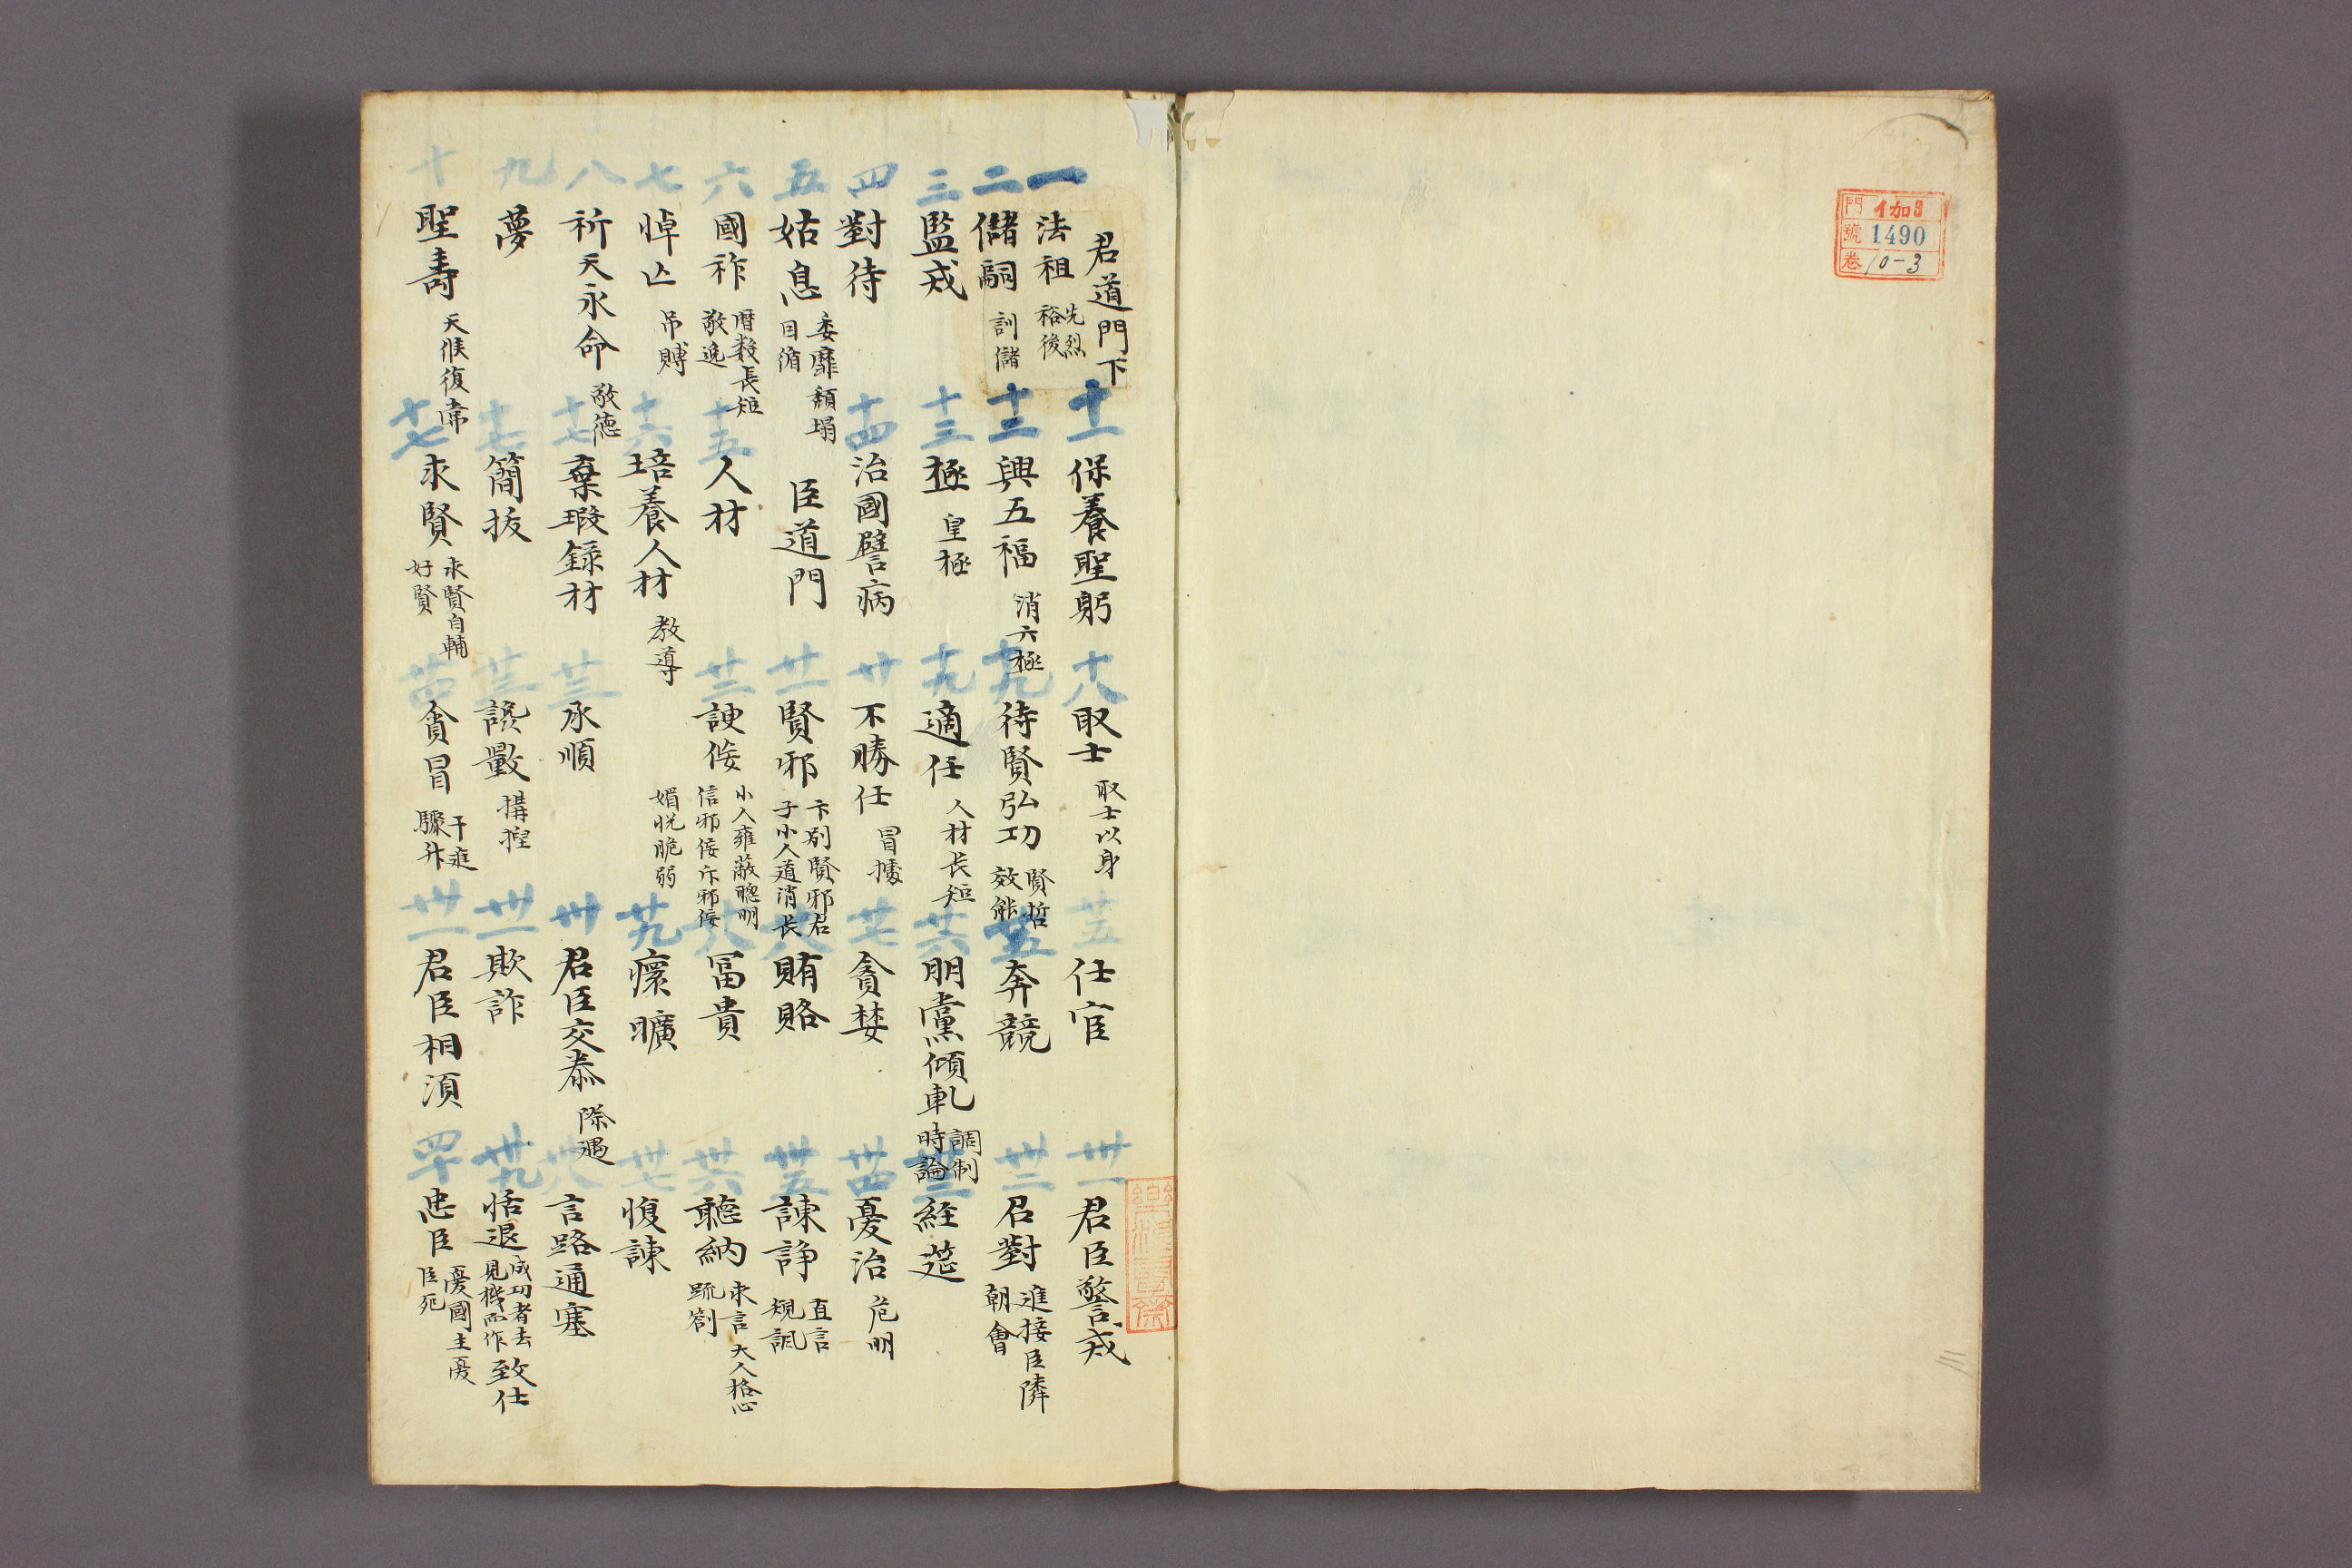 門 イ加3
號 1490
卷 10-3
君道門下
一 法祖 先烈 裕後
二 儲嗣 訓儲
三 監戒
四 對待
五 姑息 委靡頹塌 因循
六 國祚 曆数長短 敬逸
七 悼亾 吊賻
八 祈天永命 敬德
九 夢
十 聖壽 天候復常
十一 保養聖躬
十三 興五福 消六極
十三 極 皇極
十四 治國譬病
臣道門
十五 人材
十六 培養人材 教導
十七 棄瑕録材
十七 簡拔
十七 求賢 求賢自輔 好賢
十八 取士 取士以身
十九 待賢弘功 賢哲 效能
十九 適任 人材長短
廿 不勝任 冒據
廿一 賢邪 卞別賢邪君子小人道消長
廿三 諛佞 小人雍蔽聰明 信邪佞斥邪佞 媚悦脆弱
廿三 承順
廿三 讒毀 搆捏
廿四 貪冒 干進 驟升
廿五 任官
廿五 奔競
廿六 朋黨傾軋 調制 時論
廿七 貪婪
廿八 賄賂
廿八 冨貴
廿九 瘝曠
卅 君臣交泰 際遇
卅一 欺詐
卅一 君臣相須
卅一 君臣警戒
卅二 召對 進接臣隣 朝會
卅三 経莚
卅四 憂治 危明
卅五 諫諍 直言 規諷
卅六 聽納 求言 疏劄 大人格心
卅七 愎諫
卅八 言路通塞
卅九 恬退 成功者去 見機而作 致仕
四十 忠臣 憂國 主憂臣死